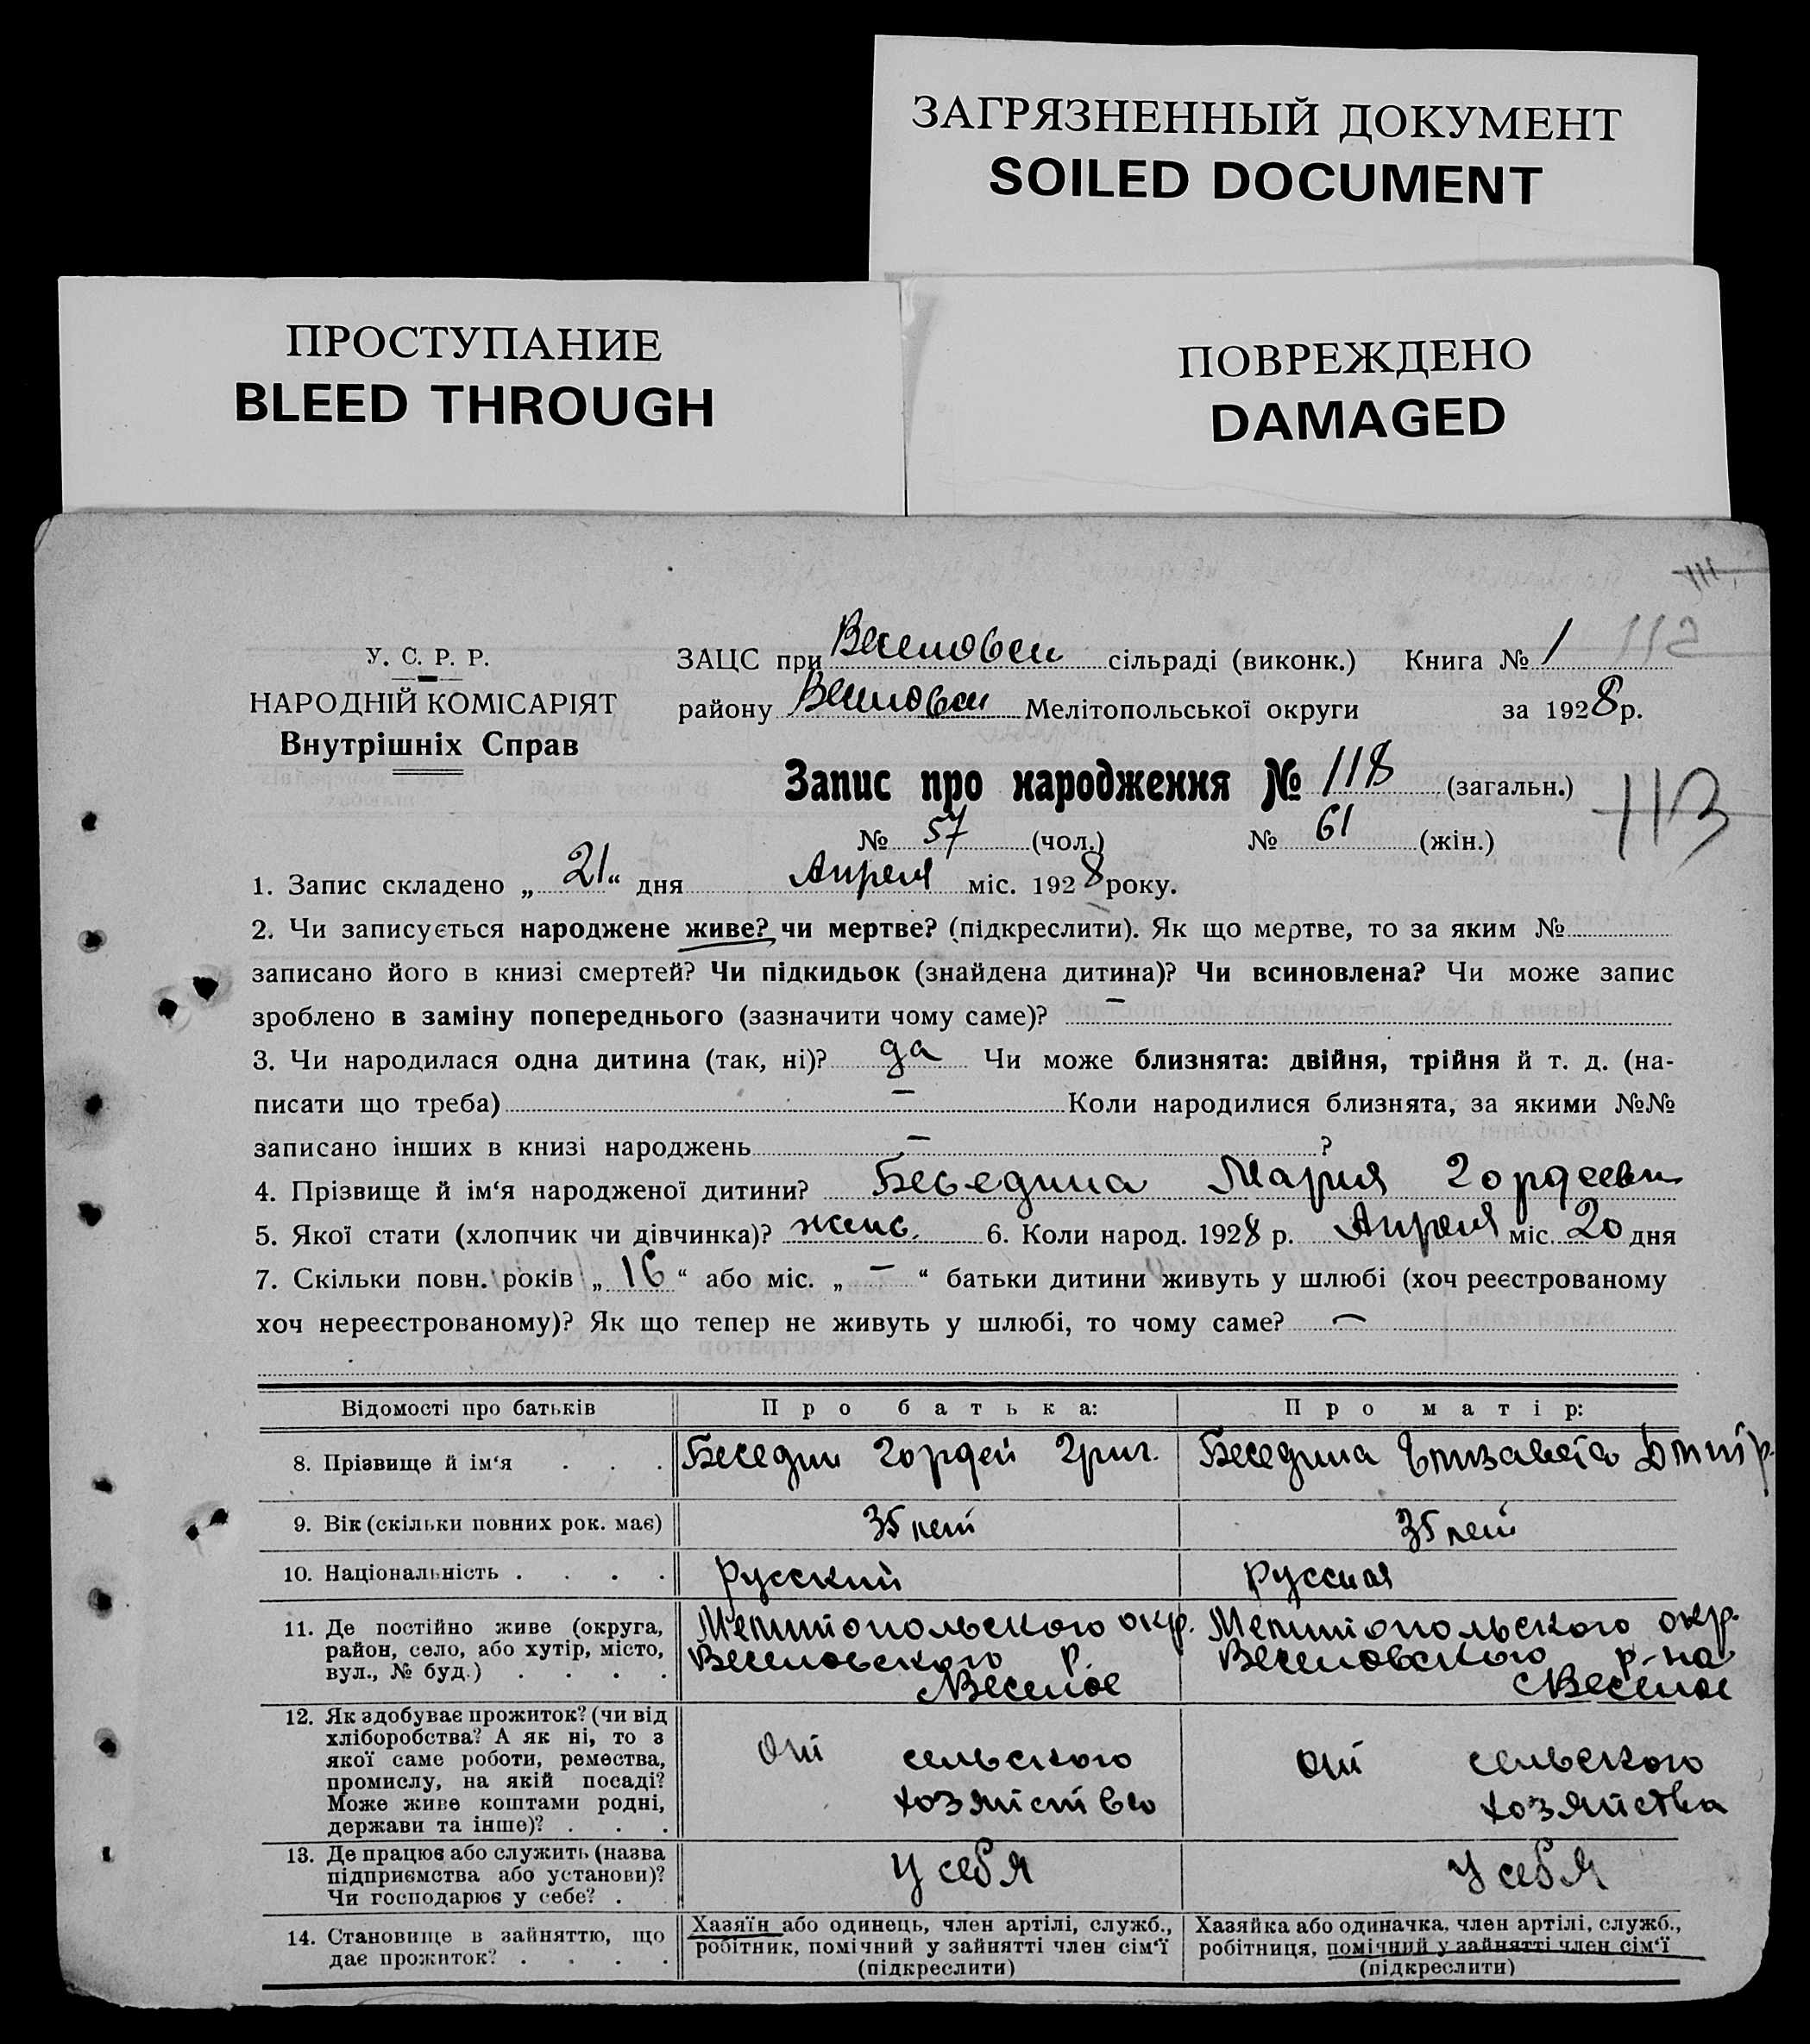 ЗАГРЯЗНЕННЫЙ ДОКУМЕНТ
SOILED DOCUMENT
ПРОСТУПАНИЕ
BLEED THROUGH
ПОВРЕЖДЕНО
DAMAGED
111
У. С. Р. Р.
НАРОДНІЙ КОМІСАРІЯТ
Внутрішніх Справ
ЗАЦС при Веселовск сільраді (виконк.) Книга № 1 112
району Веселовск Мелітопольської округи за 1928 р.
Запис про народження № 118 (загальн.)
113
№ 57 (чол.) № 61 (жін.)
1. Запис складено „ 21 “ дня Апреля міс. 1928 року.
2. Чи записується народжене живе? чи мертве? (підкреслити). Як що мертве, то за яким №
записано його в книзі смертей? Чи підкидьок (знайдена дитина)? Чи всиновлена? Чи може запис
зроблено в заміну попереднього (зазначити чому саме)? —
3. Чи народилася одна дитина (так, ні)? да Чи може близнята: двійня, трійня й т. д. (на-
писати що треба) — Коли народилися близнята, за якими №№
записано інших в книзі народжень — ?
4. Прізвище й ім‘я народженої дитини? Беседина Мария Гордеевн
5. Якої стати (хлопчик чи дівчинка)? женс. 6. Коли народ. 1928 р. Апреля міс. 20 дня
7. Скільки повн. років „ 16 “ або міс. „ — “ батьки дитини живуть у шлюбі (хоч реєстрованому
хоч нереєстрованому)? Як що тепер не живуть у шлюбі, то чому саме? —
Відомості про батьків
Про батька:
Про матір:
8. Прізвище й ім‘я . . .
Беседин Гордей Григ.
Беседина Елизавета Дмитр.
9. Вік (скільки повних рок. має)
35 лет
35 лет
10. Національність . . . .
русский
русская
11. Де постійно живе (округа,
район, село, або хутір, місто,
вул., № буд.) . . . .
Мелитопольского окр.
Веселовского р.
с Веселое
Мелитопольского окр.
Веселовского р-на
с Веселое
12. Як здобуває прожиток? (чи від
хліборобства? А як ні, то з
якої саме роботи, ремества,
промислу, на якій посаді?
Може живе коштами родні,
держави та інше)? . . .
от сельского
хозяйство
от сельского
хозяйства
13. Де працює або служить (назва
підприємства або установи)?
Чи господарює у себе? .
У себя
У себя
14. Становище в зайняттю, що
дає прожиток? . . . .
Хазяїн або одинець, член артілі, служб.,
робітник, помічний у зайнятті член сім‘ї
(підкреслити)
Хазяйка або одиначка, член артілі, служб.,
робітниця, помічний у зайнятті член сім‘ї
(підкреслити)